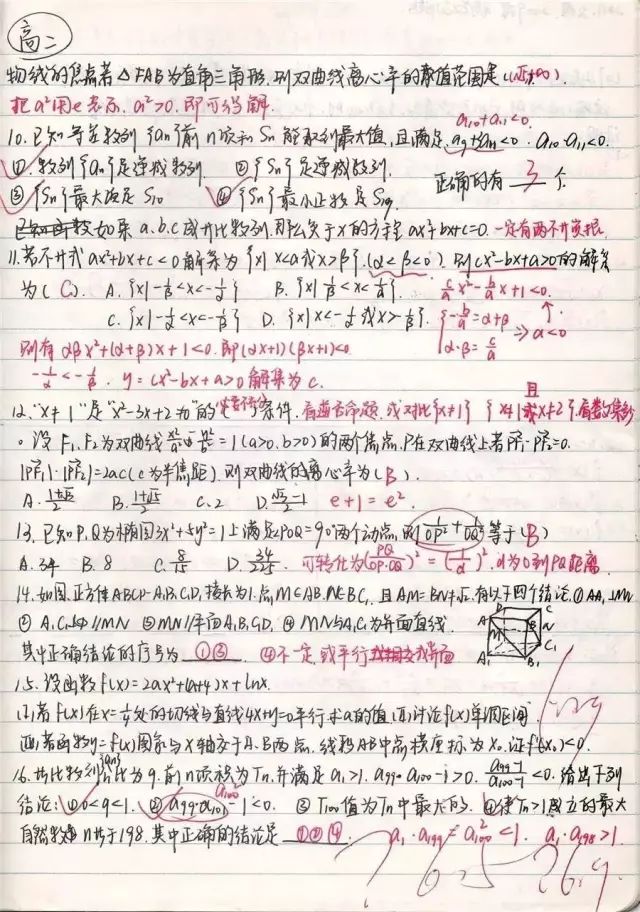 高二
物线的焦点若△FAB为直角三角形,则双曲线离心率的取值范围是(√5,+∞)
把a²用e表示,a²>0,即可得解.
a₁₀+a₁₁<0
10.已知等差数列{an}前n项和Sn能取到最大值,且满足:a₉+3a₁₁<0, a₁₀·a₁₁<0.
①.数列{an}是递减数列. ②{Sn}是递减数列. 正确的有 3 个
③{Sn}最大项是S₁₀ ④{Sn}最小正数是S₁₉
如果a.b.c成等比数列,那么关于x的方程ax²+bx+c=0.一定有两不等实根.
11.若不等式ax²+bx+c<0解集为{x|x<α或x>β},(α<β<0),则cx²-bx+a>0的解集
为(C). A.{x|-1/β<x<-1/α} B.{x|1/β<x<1/α} c/a x²-b/a x+1<0.
C.{x|-1/α<x<-1/β} D.{x|x<-1/α或x>-1/β} {-b/a=α+β α·β=c/a ⇒α<0
则有αβx²+(α+β)x+1<0.即(αx+1)(βx+1)<0
-1/α<-1/β. y=cx²-bx+a>0解集为C.
且
12."x≠1"是"x²-3x+2≠0"的(必要不充分)条件.看逆否命题,或对比{x≠1} {x≠1或x≠2}.看数集多少
。设F₁,F₂为双曲线x²/a²-y²/b²=1(a>0,b>0)的两个焦点,P在双曲线上若PF₁·PF₂=0.
|PF₁|·|PF₂|=2ac(c为半焦距),则双曲线的离心率为(B)
A.(1+√3)/2 B.(1+√5)/2 C.2 D.(√2-1)/2 e+1=e².
13.已知P,Q为椭圆3x²+5y²=1上满足∠POQ=90°两个动点,则1/OP²+1/OQ²等于(B)
A.34 B.8 C.8/15 D.34/225. 可转化为(PQ/OP·OQ)²=(1/d)².d为O到PQ距离
14.如图,正方体ABCD-A₁B₁C₁D₁棱长为1.点M∈AB₁,N∈BC₁,且AM=BN≠√2.有以下四个结论.①AA₁⊥MN
②A₁C₁∥MN ③MN∥平面A₁B₁C₁D₁ ④MN与A₁C₁为异面直线.
其中正确结论的序号为 ①③. ④不一定,或平行或异面
15.设函数f(x)=2ax²+(a+4)x+lnx.
(I)若f(x)在x=1/4处的切线与直线4x+y=0平行求a的值.(II)讨论f(x)单调区间
(III)若函数y=f(x)图象与x轴交于A.B两点,线段AB中点横座标为x₀,证f'(x₀)<0.
16.等比数列{an}公比为q.前n项积为Tn,并满足a₁>1. a₉₉·a₁₀₀-1>0. (a₉₉-1)/(a₁₀₀-1)<0.给出下列
结论:①0<q<1. ②a₉₉·a₁₀₁-1<0. ③T₁₀₀值为Tn中最大的. ④使Tn>1成立的最大
自然数n等于198.其中正确的结论是 ①②④. a₁·a₁₉₉=a₁₀₀²<1. a₁·a₁₉₈>1.